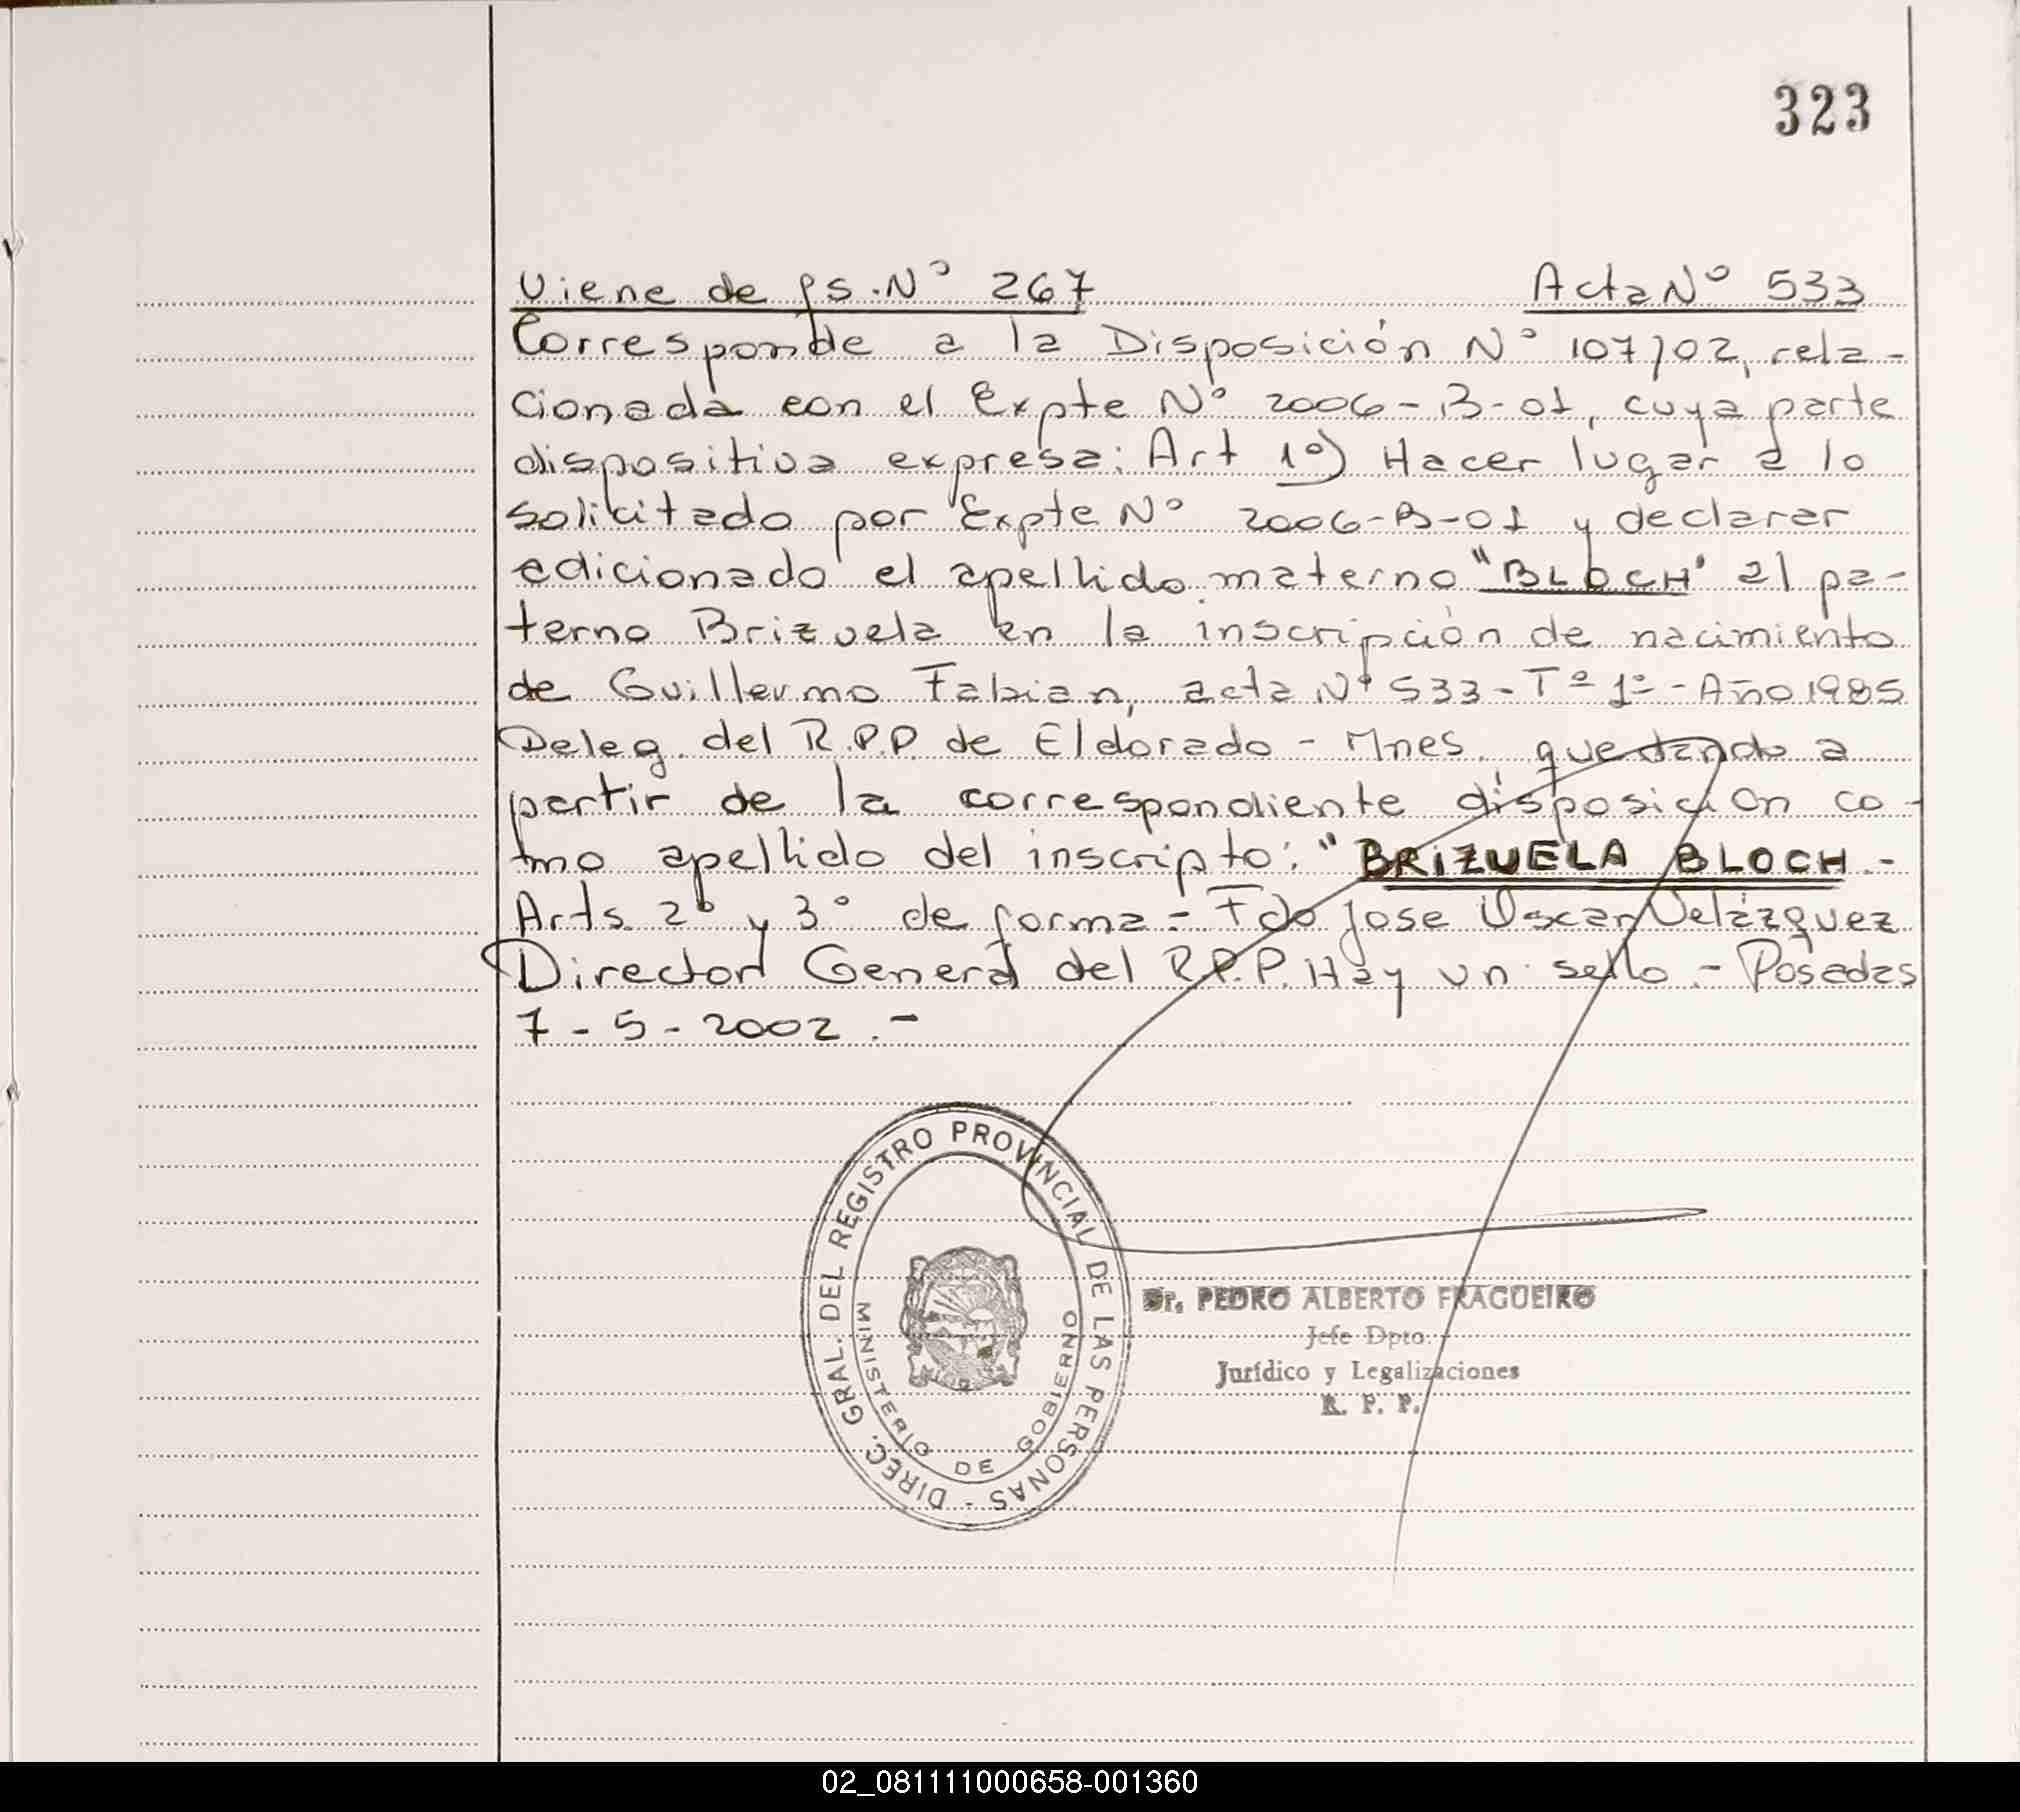 323
Viene de fs. Nº 267 Acta Nº 533
Corresponde a la Disposición Nº 107/02, rela-
cionada con el Expte Nº 2006-B-01, cuya parte
dispositiva expresa: Art 1º) Hacer lugar a lo
solicitado por Expte Nº 2006-B-01 y declarar
adicionado el apellido materno "BLOCH" al pa-
terno Brizuela en la inscripción de nacimiento
de Guillermo Fabian, acta Nº 533-Tº 1º-Año 1985
Deleg. del R.P.P. de Eldorado - Mnes. quedando a
partir de la correspondiente disposición co-
mo apellido del inscripto: "BRIZUELA BLOCH.-
Arts. 2º y 3º de forma.- Fdo Jose Oscar Velázquez
Director General del R.P.P. Hay un sello.- Posadas
7-5-2002.-
DIREC. GRAL. DEL REGISTRO PROVINCIAL DE LAS PERSONAS -
MINISTERIO DE GOBIERNO
Dr. PEDRO ALBERTO FRAGUEIRO
Jefe Dpto.
Jurídico y Legalizaciones
R. P. P.
02_081111000658-001360